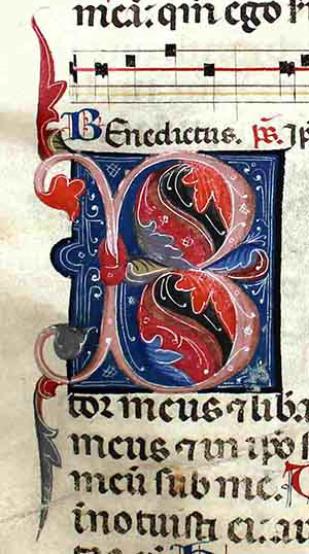 mea: qm ego
BEnedictus. ps. Ip
B
tor meus ⁊ lib.
meus ⁊ in ipo s
meū sub me.
inotuisti ei. au